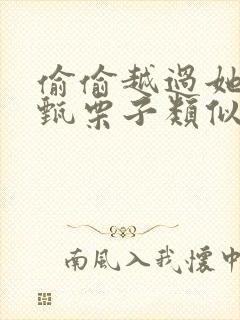 偷偷越過她
甄栗子類似
南風入我懷中